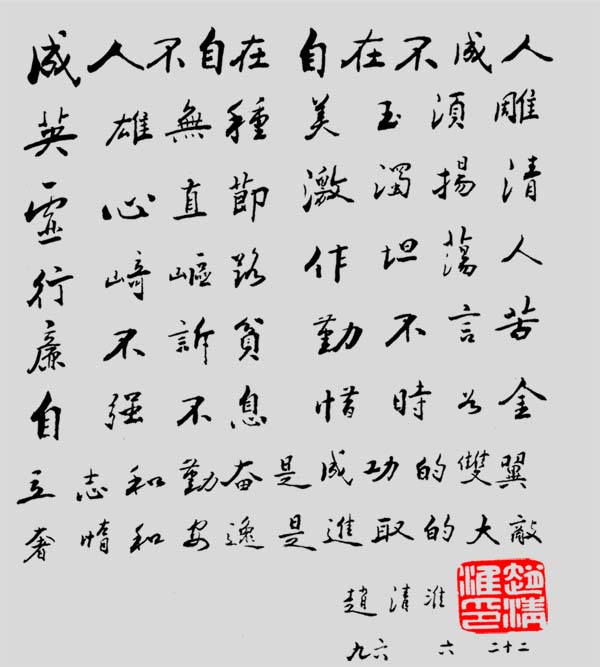 成人不自在 自在不成人
英雄無種 美玉須雕
虛心直節 激濁揚清
行崎嶇路 作坦蕩人
廉不訴貧 勤不言苦
自强不息 惜時为金
立志和勤奋是成功的雙翼
奢惰和安逸是進取的大敵
趙清淮
趙清淮印
九六 六 二十二